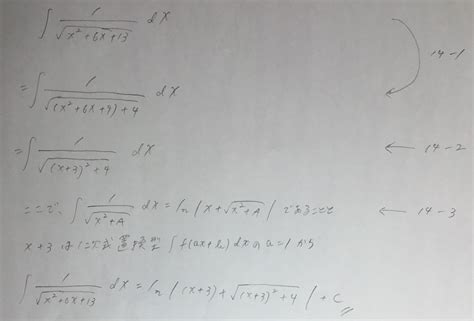 ∫ 1/√(x²+6x+13) dx
14-1
= ∫ 1/√((x²+6x+9)+4) dx
= ∫ 1/√((x+3)²+4) dx ← 14-2
ここで、∫ 1/√(x²+A) dx = ln|x+√(x²+A)| であることと ← 14-3
x+3 は 置換型 ∫f(ax+b)dx の a=1 から
∫ 1/√(x²+6x+13) dx = ln|(x+3)+√((x+3)²+4)|+C